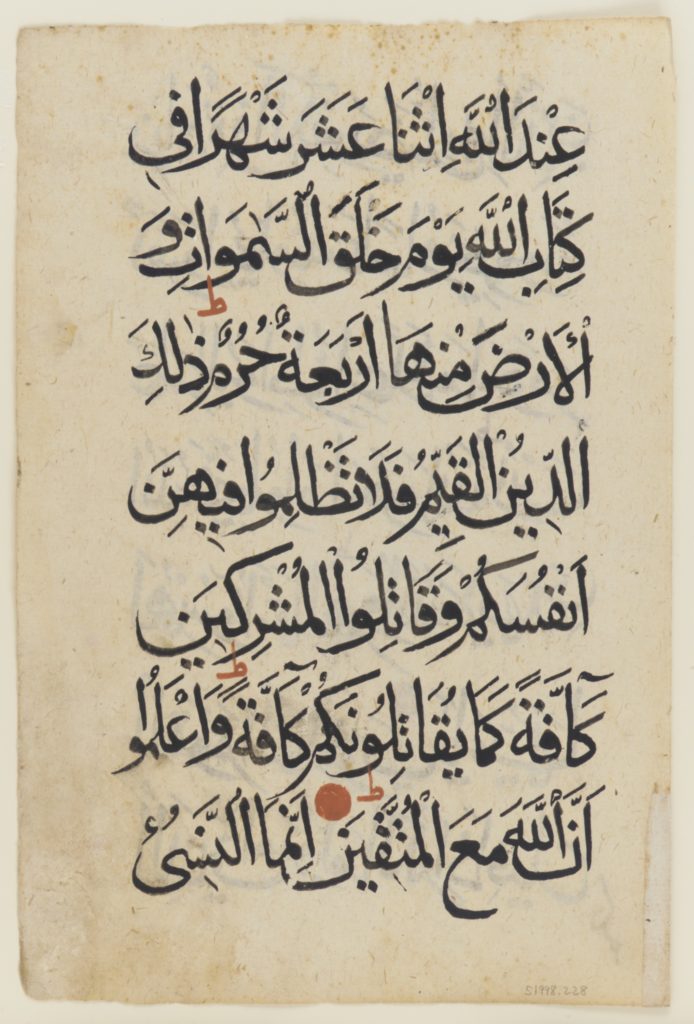 عِنْدَ اللَّهِ اِثْنَا عَشَرَ شَهْرًا فِي
كِتَابِ اللَّهِ يَوْمَ خَلَقَ السَّمٰوَاتِ وَ
ط
الْاَرْضَ مِنْهَا اَرْبَعَةٌ حُرُمٌ ذٰلِكَ
الدِّينُ الْقَيِّمُ فَلَا تَظْلِمُوا فِيهِنَّ
اَنْفُسَكُمْ وَقَاتِلُوا الْمُشْرِكِينَ
ط
كَآفَّةً كَمَا يُقَاتِلُونَكُمْ كَآفَّةً وَاعْلَمُوا
ط
اَنَّ اللَّهَ مَعَ الْمُتَّقِينَ اِنَّمَا النَّسِىُٔ
S1998.228